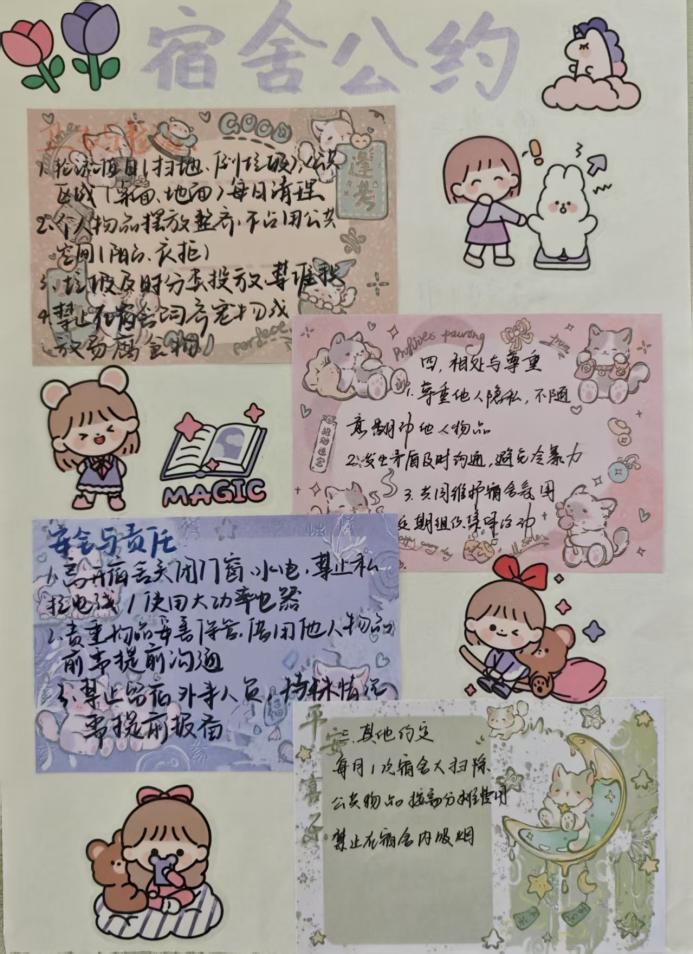 宿舍公约
GOOD
1. 轮流值日(扫地、倒垃圾),公共
区域(桌面、地面)每日清理
2. 个人物品摆放整齐,不占用公共
空间(阳台、衣柜)
3. 垃圾及时分类投放,禁堆积
4. 禁止在宿舍饲养宠物或
放易腐食物)
逢考
四、相处与尊重
1. 尊重他人隐私,不随
意翻动他人物品
2. 发生矛盾及时沟通,避免冷暴力
3. 共同维护宿舍氛围
定期组织集体活动
MAGIC
安全与责任
1. 离开宿舍关闭门窗、水电,禁止私
拉电线/使用大功率电器
2. 贵重物品妥善保管,借用他人物品
前需提前沟通
3. 禁止留宿外来人员,特殊情况
需提前报告
平安喜乐
二、其他约定
每月1次宿舍大扫除
公共物品按需分摊费用
禁止在宿舍内吸烟